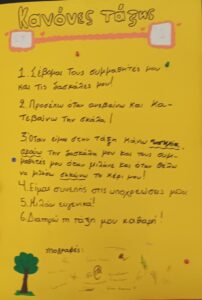 Κανόνες τάξης
1. Σέβομαι τους συμμαθητές μου
και τις δασκάλες μου!
2. Προσέχω όταν ανεβαίνω και κα-
τεβαίνω την σκάλα!
3. Όταν είμαι στην τάξη κάνω ησυχία,
ακούω την δασκάλα μου και τους συμ-
μαθητές μου όταν μιλάνε και όταν θέλω
να μιλήσω σηκώνω το χέρι μου!
4. Είμαι συνεπής στις υποχρεώσεις μου
5. Μιλάω ευγενικά!
6. Διατηρώ τη τάξη μου καθαρή!
Υπογραφές: